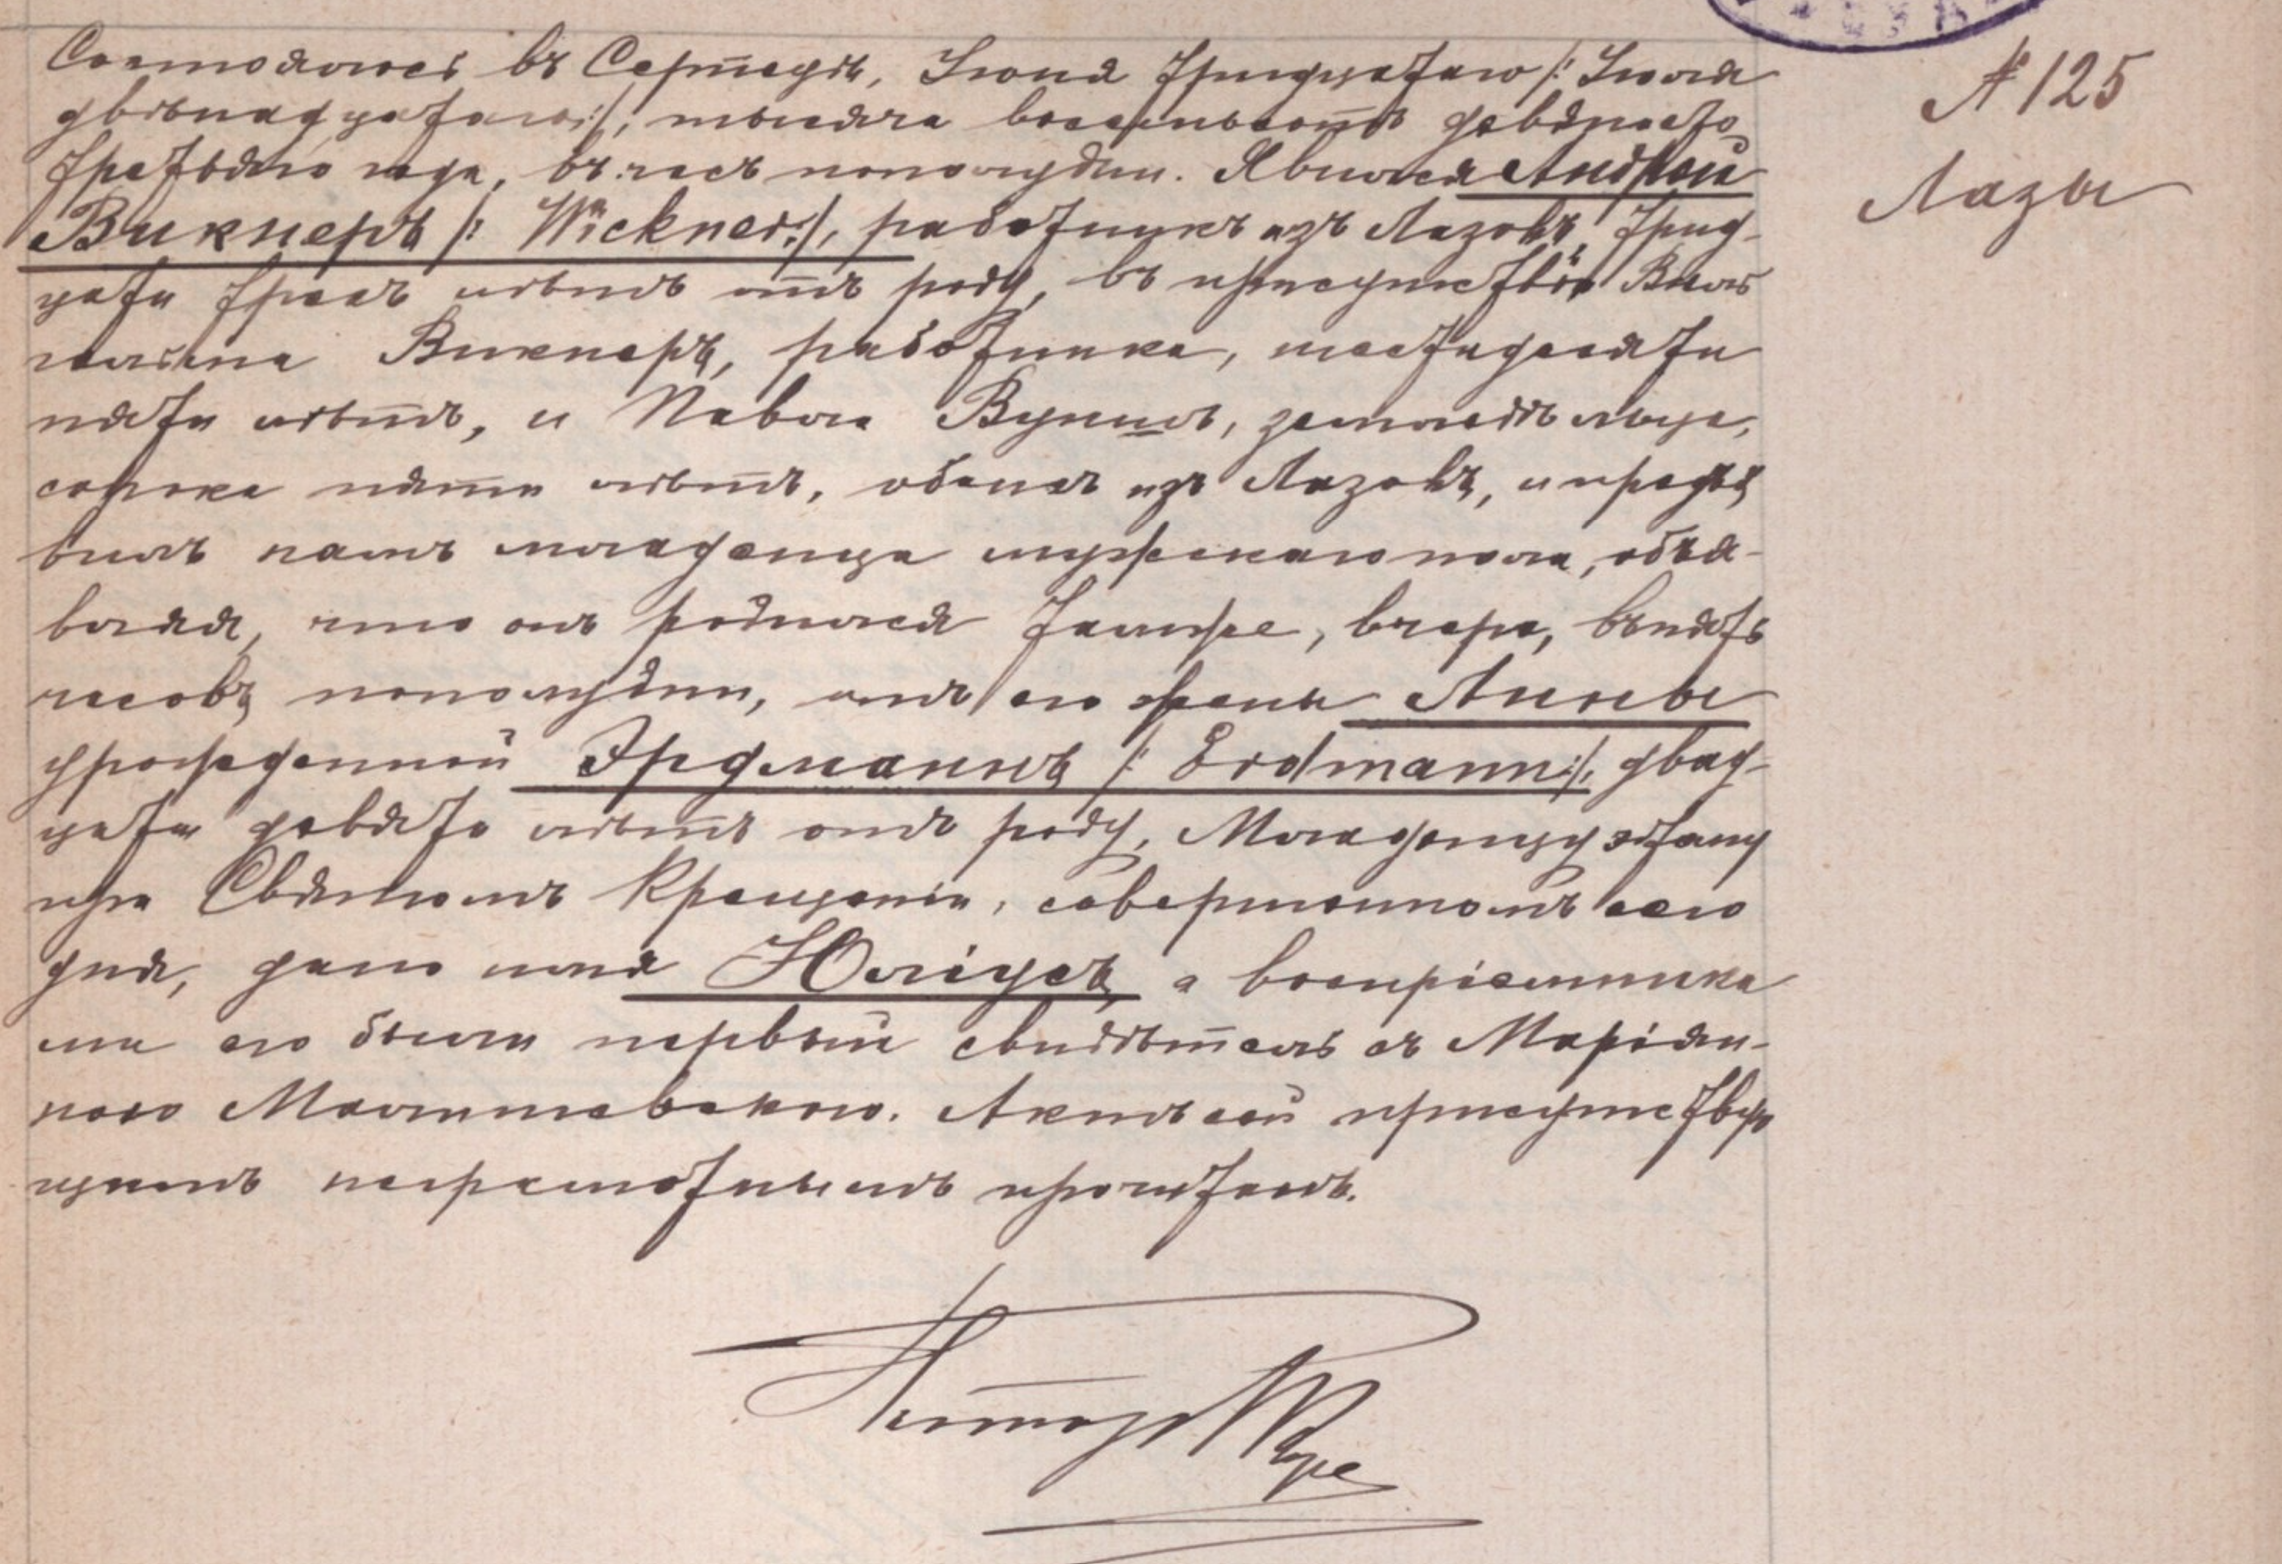 № 125
Лазы
Состоялось въ Серпецѣ, Іюня тридцатаго /: Іюля
двѣнадцатаго :/, тысяча восемьсотъ девяносто
третьяго года, въ часъ пополудни. Явился Андрей
Викнеръ /: Wickner :/, работникъ изъ Лазовъ, трид-
цати трехъ лѣтъ отъ роду, въ присутствіи Виль
гельма Викнеръ, работника, шестидесяти
пяти лѣтъ, и Павла, земледѣльца,
сорока пяти лѣтъ, обоихъ изъ Лазовъ, и предъя
вилъ намъ младенца мужскаго пола, объя-
вляя, что онъ родился тамже, вчера, въ пять
часовъ пополудни, отъ его жены Анны
урожденной Эрдманнъ /: Erdmann :/, двад-
цати девяти лѣтъ отъ роду. Младенцу этому
при Святомъ Крещеніи, совершенномъ сего
дня, дано имя Юліусъ, а воспріемника
ми его были первый свидѣтель съ Маріян-
ною. Актъ сей присутствую
щимъ неграмотнымъ прочитанъ.
Пасторъ